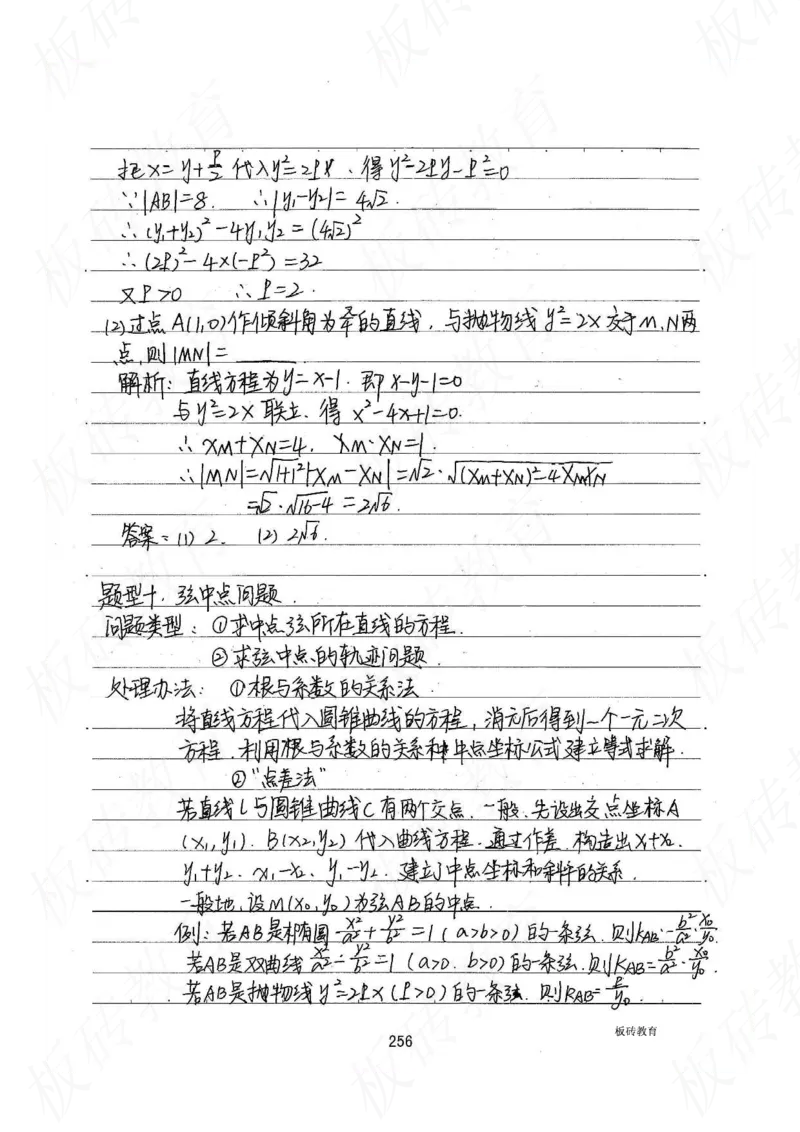 把x=y+p/2代入y²=2px，得y²-2py-p²=0
∵|AB|=8. ∴|y₁-y₂|=4√2.
∴(y₁+y₂)²-4y₁y₂=(4√2)²
∴(2p)²-4×(-p²)=32
又p>0 ∴p=2.
(2)过点A(1,0)作倾斜角为π/4的直线，与抛物线y²=2x交于M.N两
点，则|MN|=______
解析：直线方程为y=x-1. 即x-y-1=0
与y²=2x联立，得x²-4x+1=0.
∴xM+xN=4, xM·xN=1.
∴|MN|=√(1+1²)|xM-xN|=√2·√((xM+xN)²-4xMxN)
=√2·√(16-4)=2√6.
答案：(1) 2. (2) 2√6.
题型十. 弦中点问题.
问题类型：①求中点弦所在直线的方程.
②求弦中点的轨迹问题.
处理办法：①根与系数的关系法.
将直线方程代入圆锥曲线的方程，消元后得到一个一元二次
方程，利用根与系数的关系和中点坐标公式建立等式求解.
②“点差法”
若直线l与圆锥曲线C有两个交点，一般，先设出交点坐标A
(x₁,y₁). B(x₂,y₂)代入曲线方程，通过作差，构造出x₁+x₂.
y₁+y₂. x₁-x₂. y₁-y₂. 建立了中点坐标和斜率的关系.
一般地，设M(x₀,y₀)为弦AB的中点.
例：若AB是椭圆x²/a²+y²/b²=1(a>b>0)的一条弦，则kAB=-b²/a²·x₀/y₀.
若AB是双曲线x²/a²-y²/b²=1(a>0. b>0)的一条弦，则kAB=b²/a²·x₀/y₀.
若AB是抛物线y²=2px(p>0)的一条弦，则kAB=p/y₀.
256
板砖教育